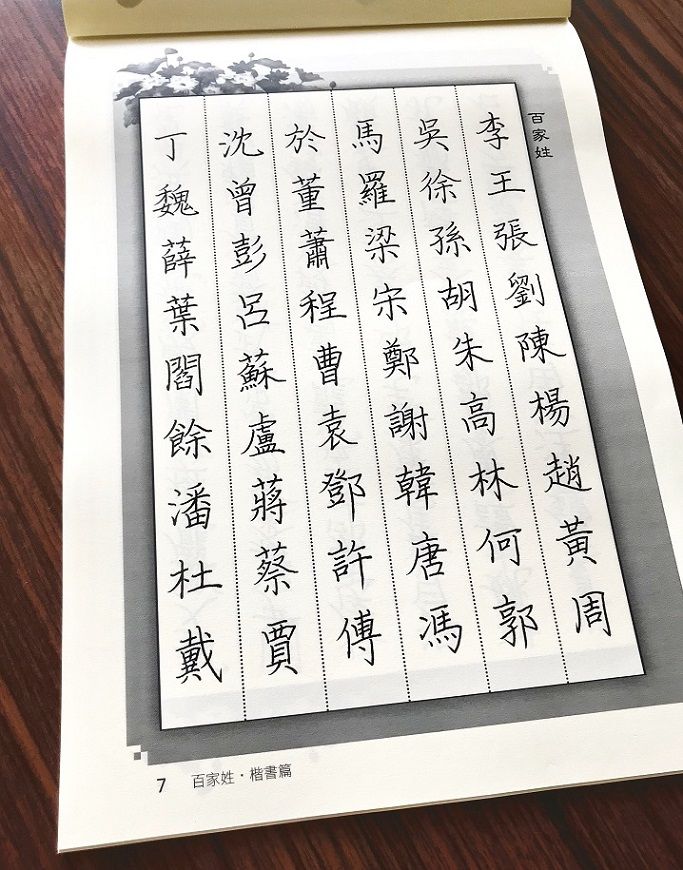 百家姓
李王張劉陳楊趙黃周
吳徐孫胡朱高林何郭
馬羅梁宋鄭謝韓唐馮
於董蕭程曹袁鄧許傅
沈曾彭呂蘇盧蔣蔡賈
丁魏薛葉閻餘潘杜戴
7 百家姓・楷書篇